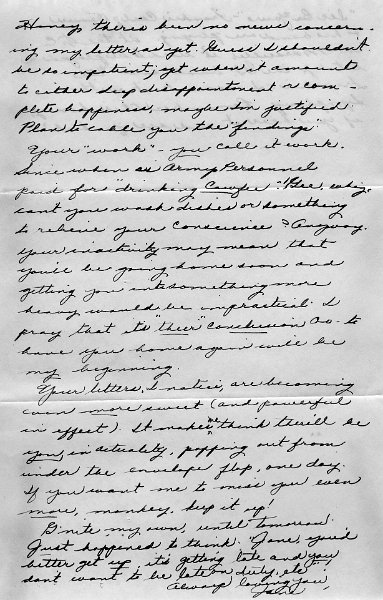 Honey, there's been no news concern-
ing my letter, as yet. Guess I shouldn't
be so impatient, yet when it amounts
to either deep disappointment or com-
plete happiness, maybe I'm justified.
Plan to cable you the "findings".
Your "work" - you call it work.
Since when is Army Personnel
paid for "drinking Cawfee"? Gee, why
can't you wash dishes or something
to relieve your conscience? Anyway,
your inactivity may mean that
you'll be going home soon and
getting you into something more
heavy would be impractical. I
pray that it's "their" conclusion to
have you home again will be
my beginning.
Your letters, I notice, are becoming
even more sweet (and powerful
in effect). It makes me think there'll be
you, in actuality, popping out from
under the envelope flap, one day.
If you want me to miss you even
more, monkey, keep it up!
G'nite my own, until tomorrow.
Just happened to think: "Jane, you'd
better get up, it's getting late and you
don't want to be late on duty, etc"
Always loving you,
Jane